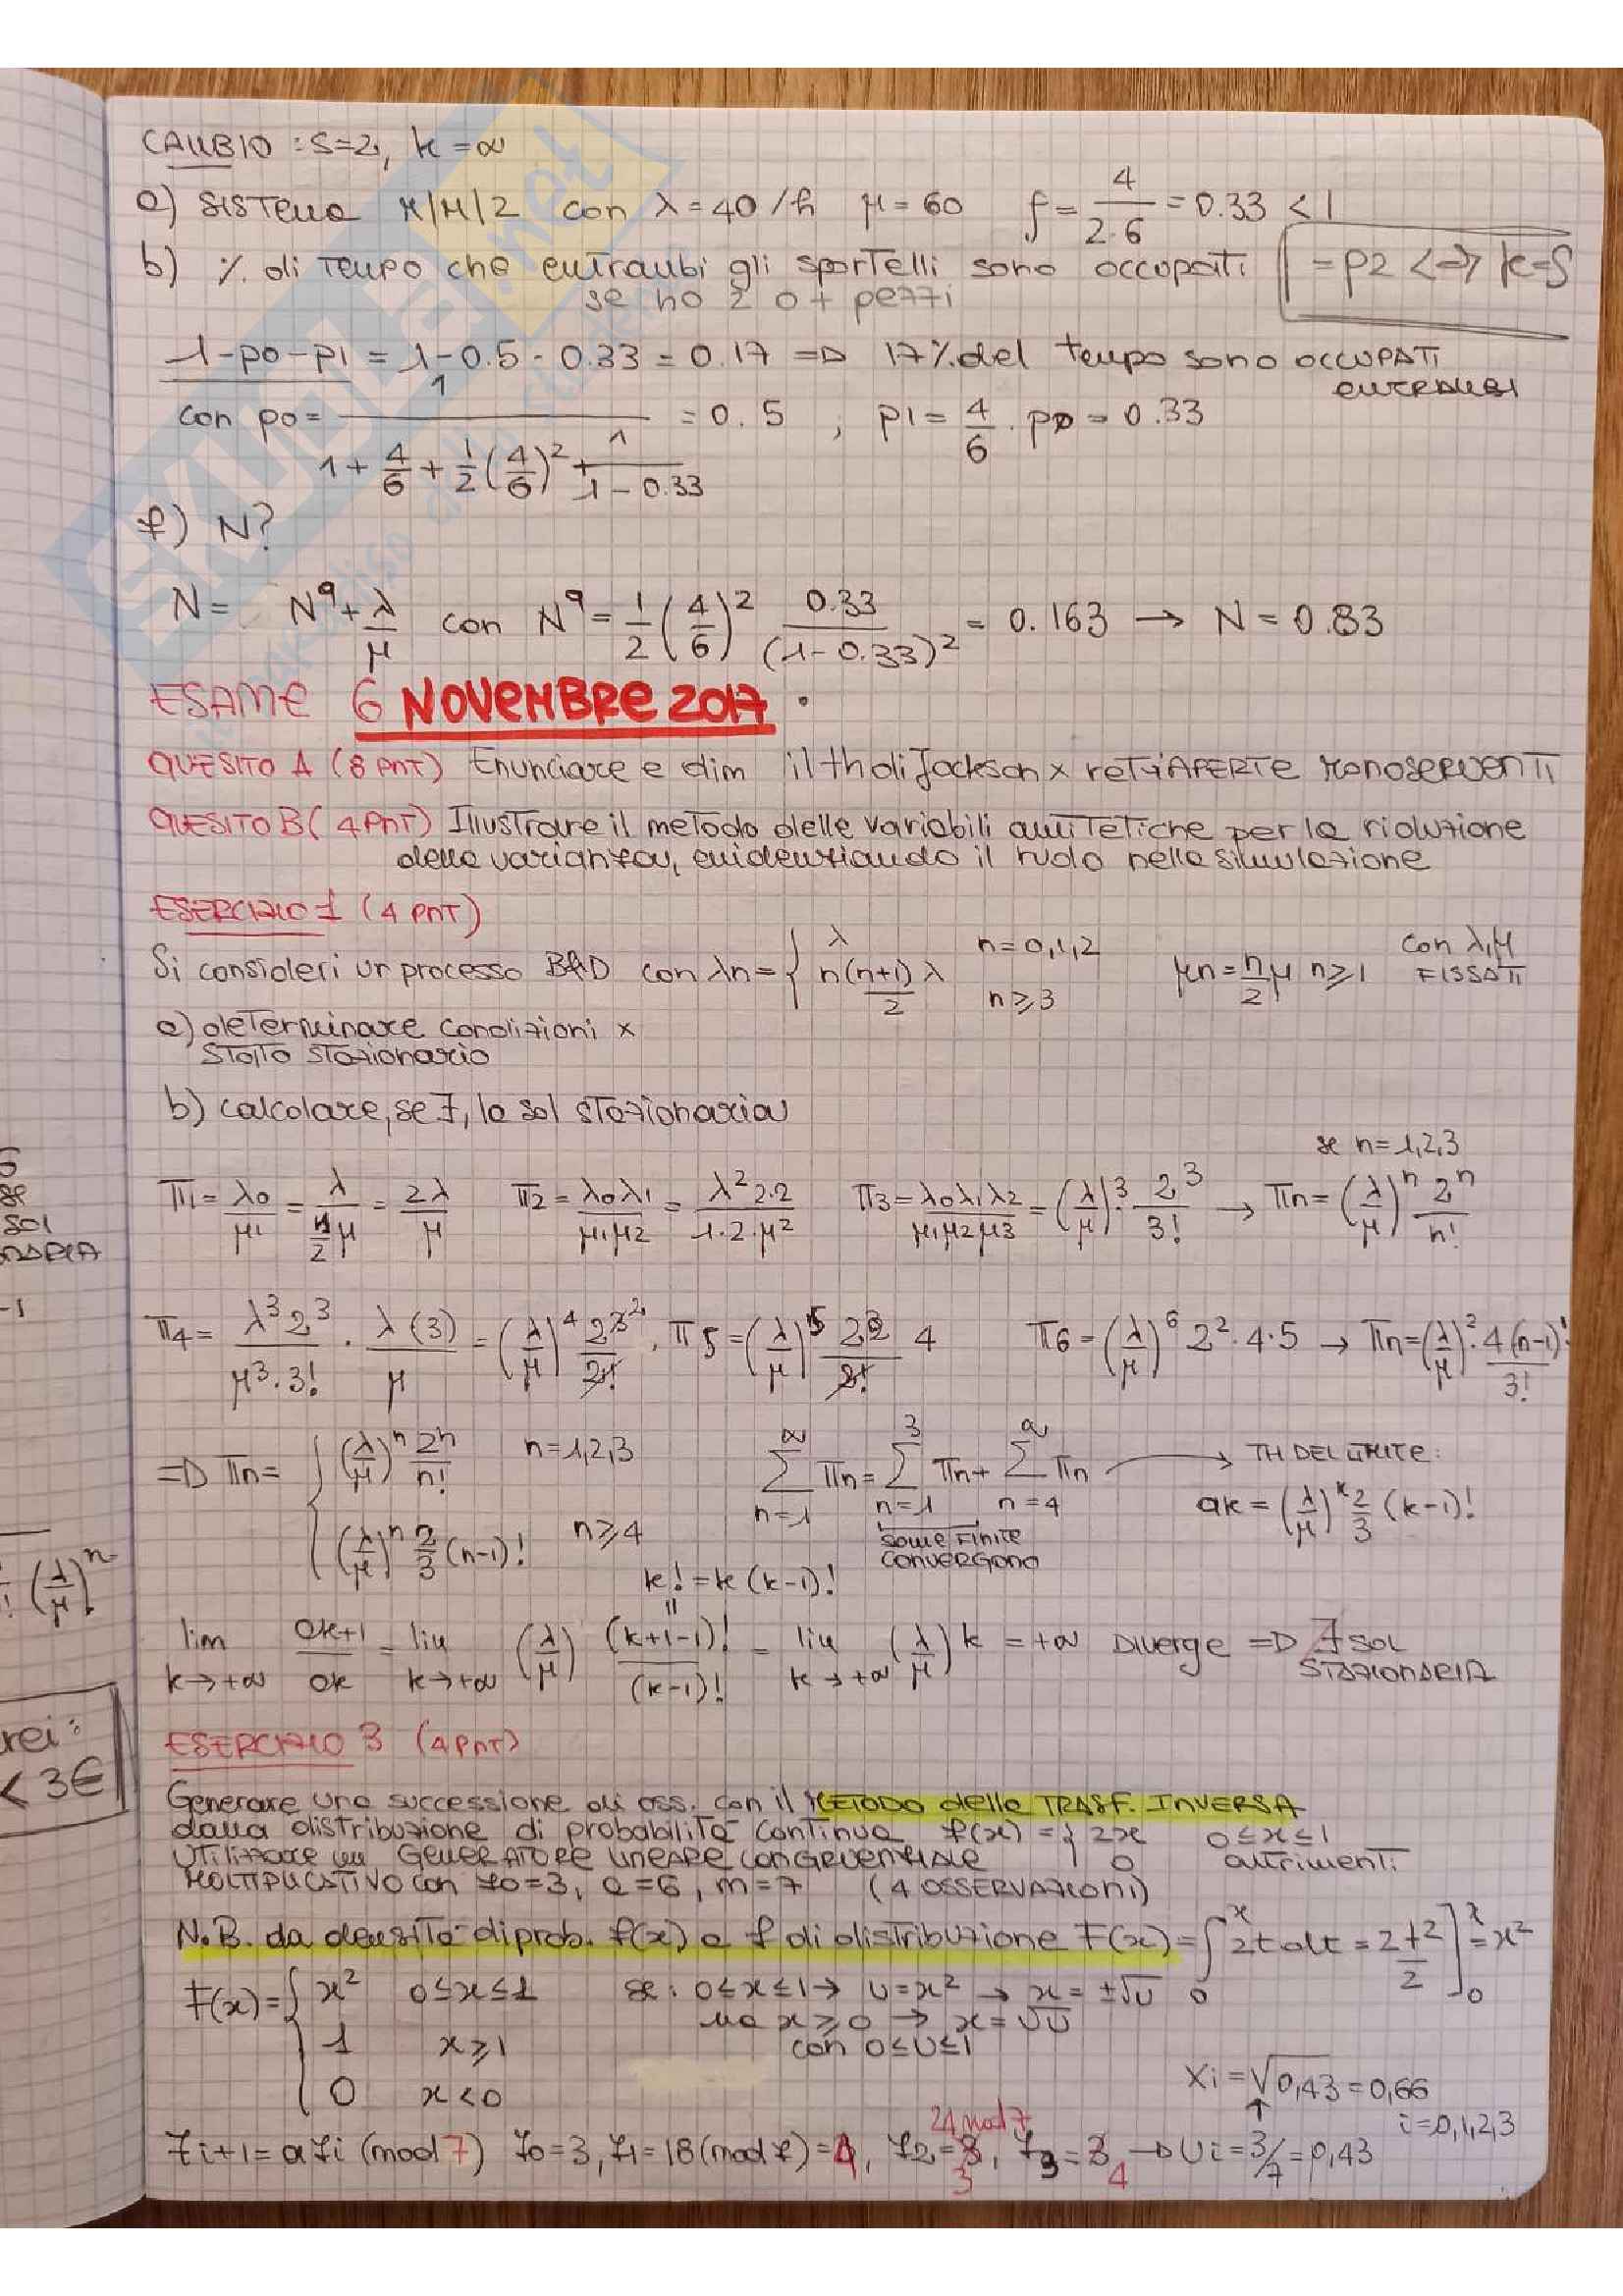 CAMBIO : S=2, k=∞
a) SISTEMA M/M/2 con λ=40/h μ=60 ρ = 4/(2·6) = 0.33 < 1
b) % di tempo che entrambi gli sportelli sono occupati [ = p2 <=> k=S
se ho 2 o + pezzi
1-p0-p1 = 1-0.5-0.33 = 0.17 => 17% del tempo sono OCCUPATI ENTRAMBI
con p0 = 1/(1 + 4/6 + 1/2 (4/6)^2 + 1/(1-0.33)) = 0.5 ; p1 = 4/6 · p0 = 0.33
f) N?
N = N^q + λ/μ con N^q = 1/2 (4/6)^2 0.33/(1-0.33)^2 = 0.163 → N = 0.83
ESAME 6 NOVEMBRE 2017
QUESITO A (8 PNT) Enunciare e dim il th di Jackson x reti APERTE MONOSERVENTI
QUESITO B (4 PNT) Illustrare il metodo delle variabili antitetiche per la riduzione
della varianza, evidenziando il ruolo nella simulazione
ESERCIZIO 1 (4 PNT)
Si consideri un processo B&D con λn = { λ n=0,1,2 ; n(n+1)/2 λ n≥3 μn = n/2 μ n≥1 con λ,μ FISSATI
a) determinare condizioni x
stato stazionario
b) calcolare, se ∃, la sol stazionaria
se n=1,2,3
Π1 = λ0/μ1 = λ/(1/2 μ) = 2λ/μ Π2 = λ0λ1/μ1μ2 = λ^2 2·2/(1·2·μ^2) Π3 = λ0λ1λ2/μ1μ2μ3 = (λ/μ)^3 · 2^3/3! → Πn = (λ/μ)^n 2^n/n!
Π4 = λ^3 2^3/(μ^3·3!) · λ(3)/μ = (λ/μ)^4 2^2/2! , Π5 = (λ/μ)^5 2^2/2! 4 Π6 = (λ/μ)^6 2^2·4·5 → Πn = (λ/μ)^2 · 4(n-1)!/3!
=> Πn = { (λ/μ)^n 2^n/n! n=1,2,3 ∑_{n=1}^{∞} Πn = ∑_{n=1}^{3} Πn + ∑_{n=4}^{∞} Πn → TH DEL LIMITE:
(λ/μ)^n 2/3 (n-1)! n≥4 SOMME FINITE CONVERGONO ak = (λ/μ)^k 2/3 (k-1)!
k! = k(k-1)!
lim k→+∞ ak+1/ak = lim k→+∞ (λ/μ) (k+1-1)!/(k-1)! = lim k→+∞ (λ/μ) k = +∞ DIVERGE => ∄ SOL STAZIONARIA
ESERCIZIO 3 (4 PNT)
Generare una successione di oss. con il METODO della TRASF. INVERSA
dalla distribuzione di probabilità continua f(x) = { 2x 0≤x≤1
Utilizzare un GENERATORE LINEARE CONGRUENZIALE 0 altrimenti
MOLTIPLICATIVO con z0=3, a=6, m=7 (4 OSSERVAZIONI)
N.B. da densità di prob. f(x) a f di distribuzione F(x) = ∫_0^x 2t dt = 2 t^2/2 ]_0^x = x^2
F(x) = { x^2 0≤x≤1 se: 0≤x≤1 → U=x^2 → x = ±√U
ma x≥0 → x = √U
1 x≥1 con 0≤U≤1
0 x<0 Xi = √0,43 = 0,66
i=0,1,2,3
24 mod 7
zi+1 = a zi (mod 7) z0=3, z1=18 (mod 7)=4, z2=3, z3=4 → Ui = 3/7 = 0,43
SOL
-1
(λ/μ)^n
rei:
< 3€
SKUOLa.net